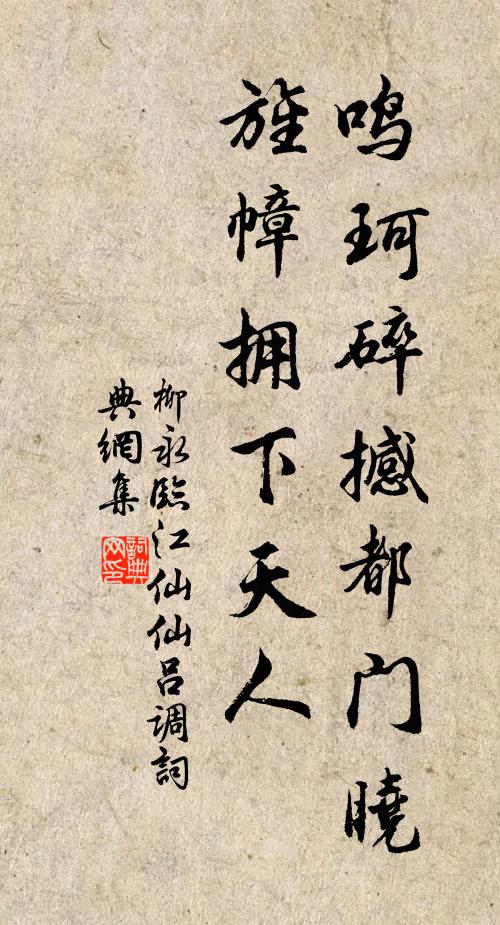 鸣珂碎撼都门晓
旌幢拥下天人
柳永临江仙仙吕调词
典網集
詞典
网印